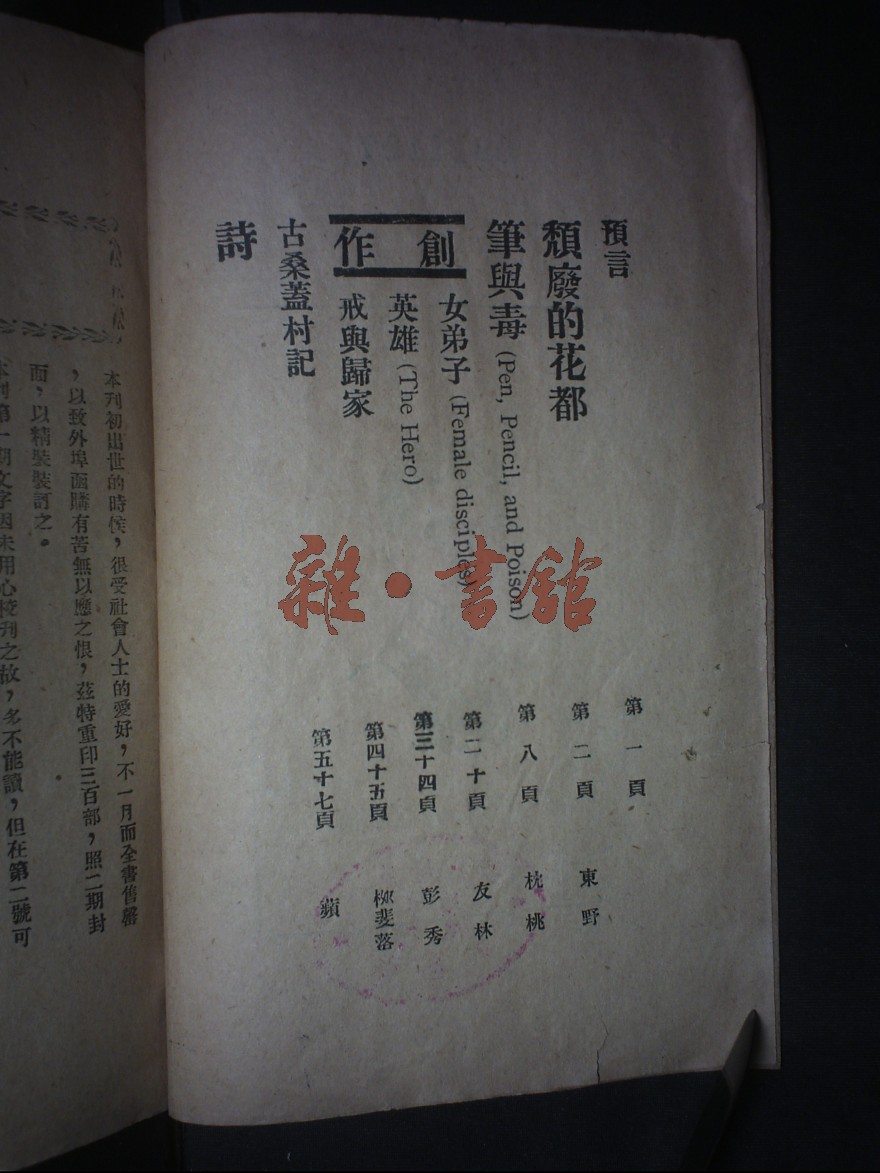 預言 第一頁
頹廢的花都 第二頁 東野
筆與毒 (Pen, Pencil, and Poison) 第八頁 枕桃
創作
女弟子 (Female disciples) 第二十頁 友林
英雄 (The Hero) 第三十四頁 彭秀
戒與歸家 第四十五頁 柳斐落
古桑蓋村記 第五十七頁 蘋
詩
雜·書館
本刊初出世的時候,很受社會人士的愛好,不一月而全書售罄
,以致外埠函購有苦無以應之恨,茲特重印三百部,照二期封
面,以精裝裝訂之。
本刊第一期文字因未用心校刊之故,多不能讀,但在第二號可